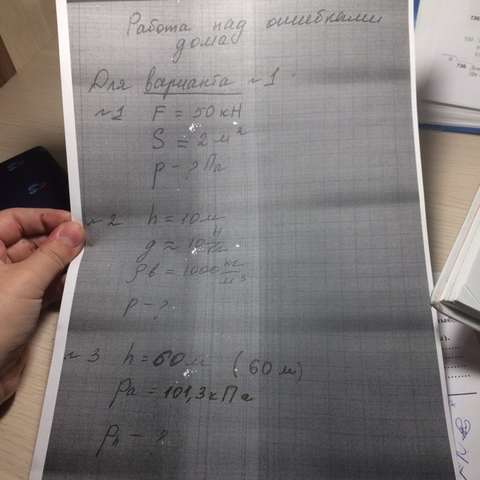 Работа над ошибками
дома
Для варианта №1
№1 F = 50 кН
S = 2 м²
p - ? Па
№2 h = 10 м
g ≈ 10 Н/кг
ρв = 1000 кг/м³
p - ?
№3 h = 60 м (60 м)
pа = 101,3 кПа
ph - ?